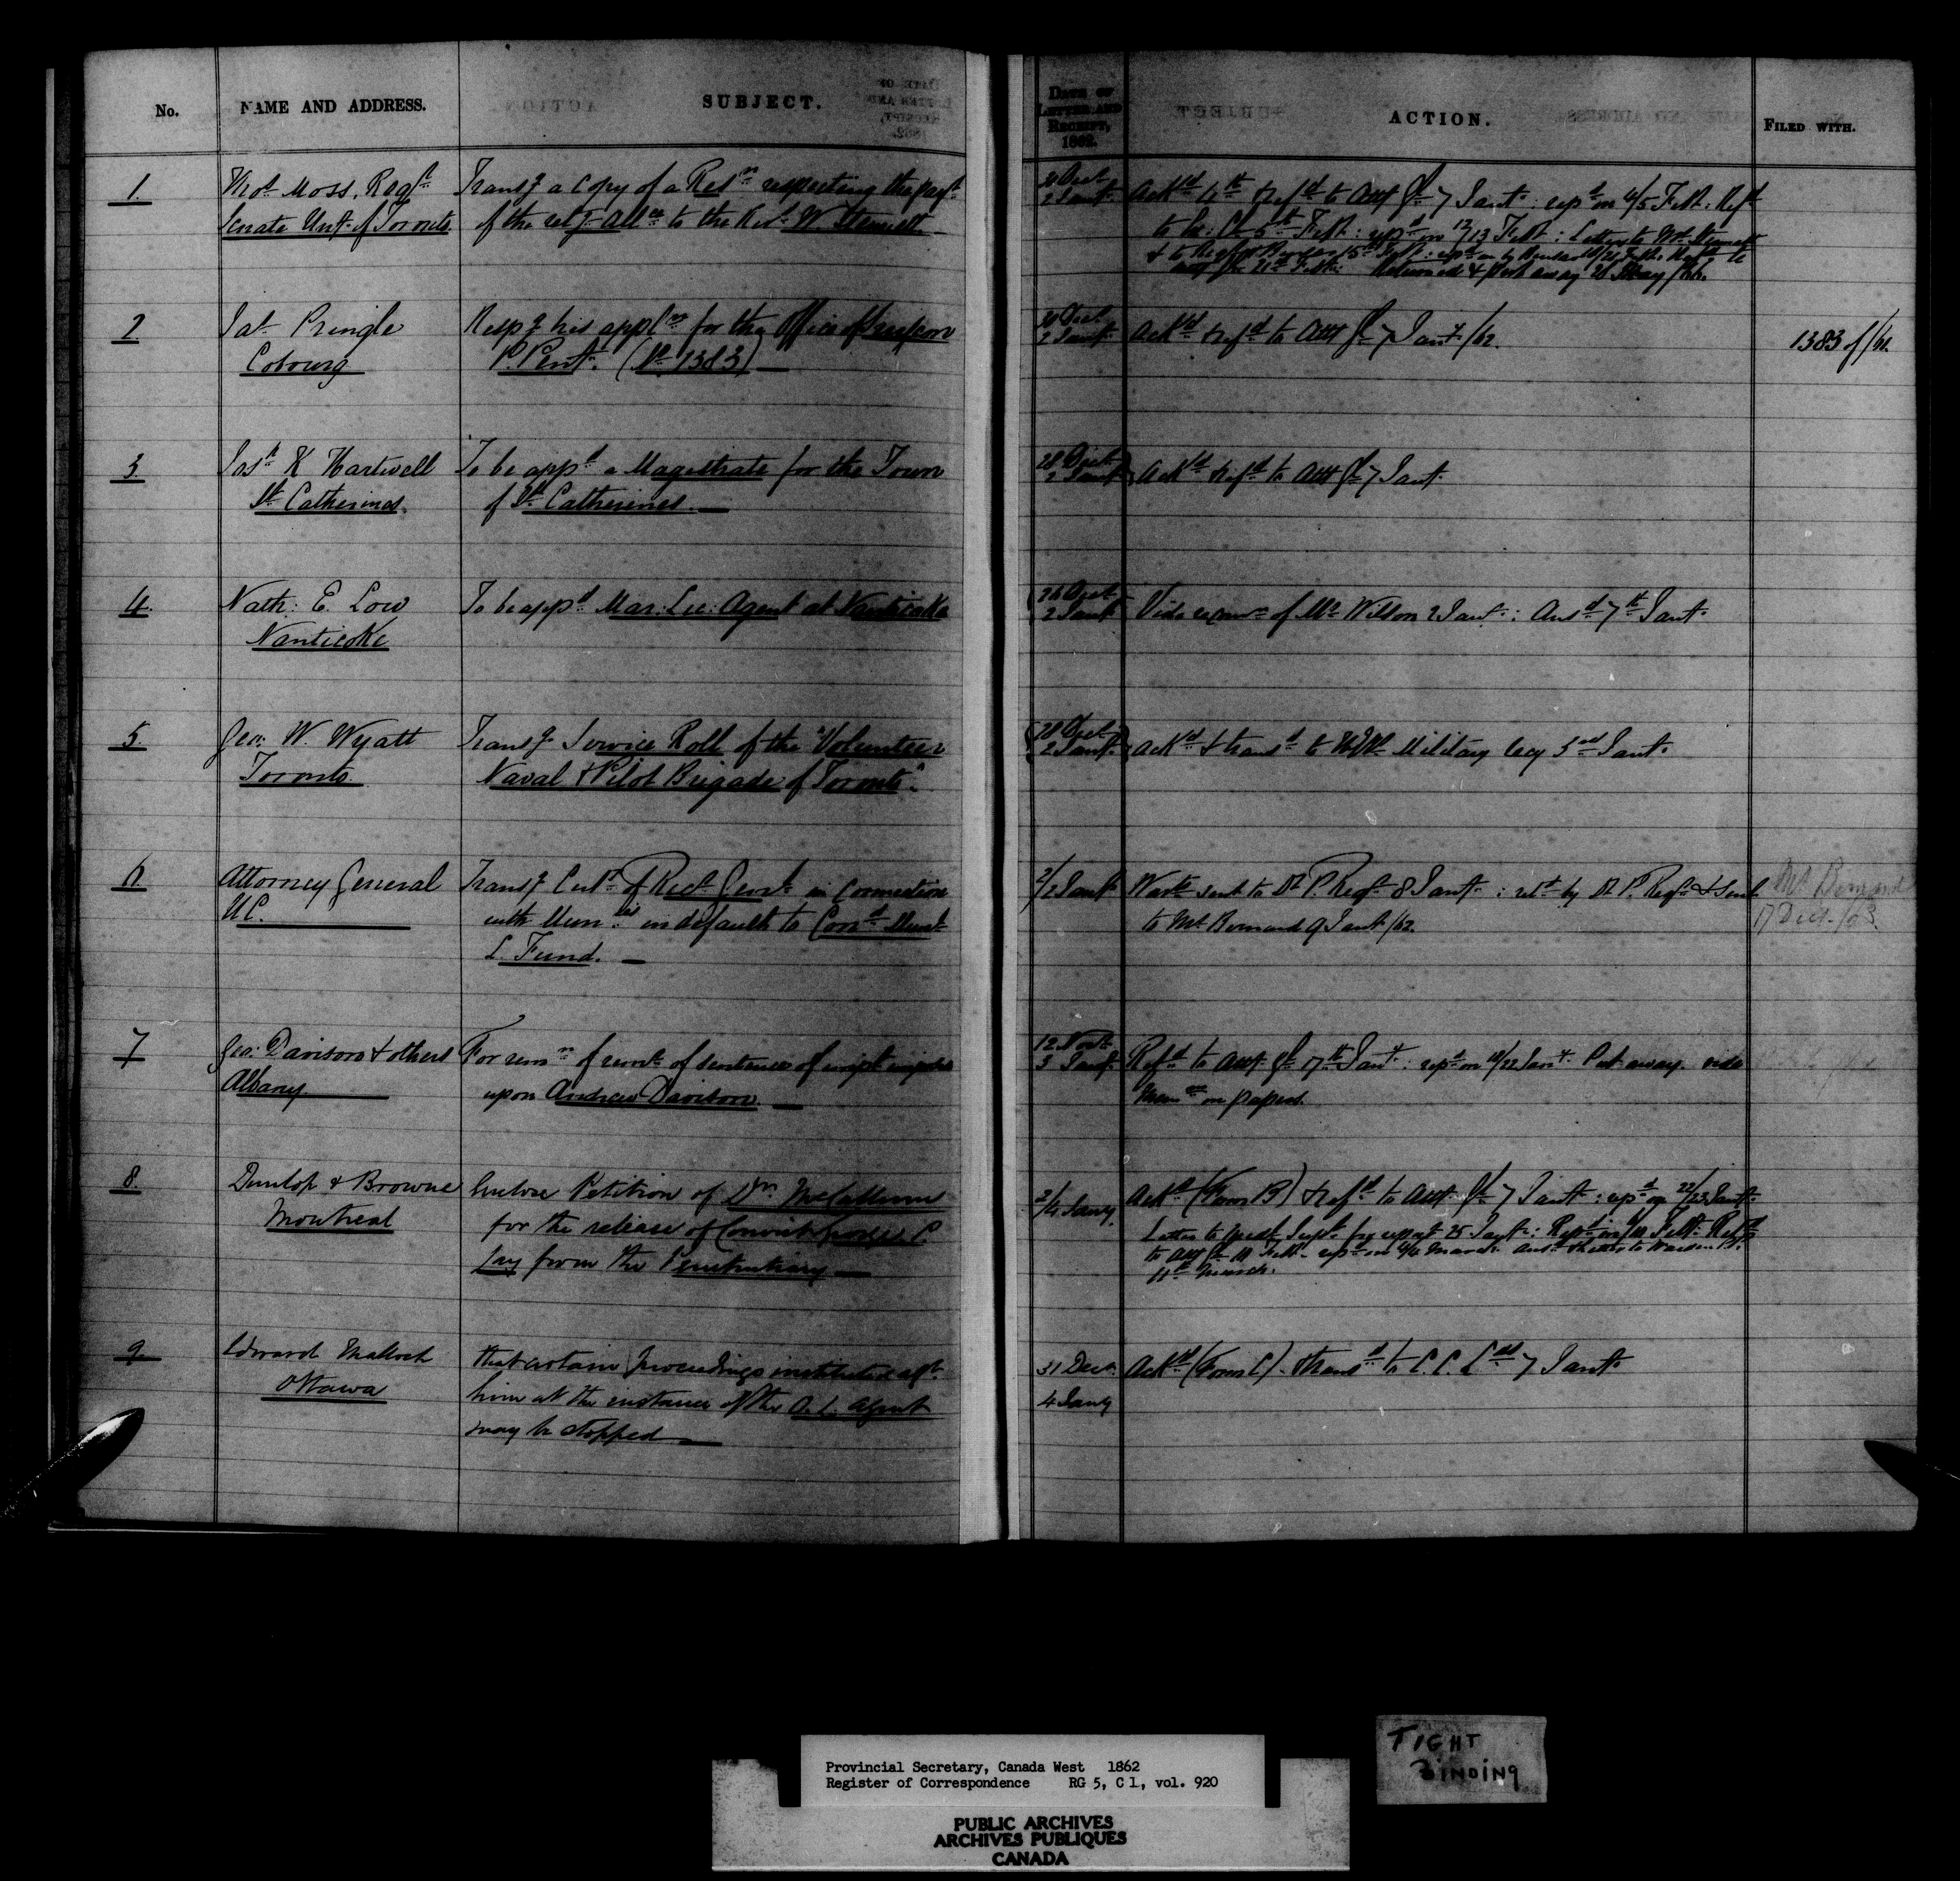 No.
NAME AND ADDRESS.
SUBJECT.
DATE OF
LETTER AND
RECEIPT,
1862.
ACTION.
FILED WITH.
1.
Thos. Moss, Regr.
Senate Unty. of Toronto
Transg. a Copy of a Resn. respecting the
of the retg. Allce. to the Revd. W. Stennett
2 Jany.
Ackd. 4th & refd. to Atty Gl. 7 Jany. : repd. on 4/5 Feb. Refd.
to 12/13 Feb. : Letter to
Returned & put away May /62.
2.
Jas. Pringle
Cobourg
Respg. his applon. for the Office of
P. Penty. (No. 1383)
30 Dect.
2 Jany.
Ackd. & refd. to Atty Gl. 7 Jany. /62.
1383 of /61.
3.
Jash. K Hartwell
St. Catherines.
To be appd. a Magistrate for the Town
of St. Catherines.
28 Dect.
2 Jany.
Ackd. & refd. to Atty Gl. 7 Jany.
4.
Nath: E. Low
Nanticoke
To be appd. Mar: Lic: Agent at Nanticoke
26 Dect.
2 Jany.
Vide recomn. of Mr. Wilson 2 Jany. : Ansd. 7th Jany.
5.
Geo: W. Wyatt
Toronto.
Transg. Service Roll of the "Volunteer
Naval & Pilot Brigade of Toronto".
28 Dect.
2 Jany.
Ackd. & transd. to Military Secy 3rd Jany.
6.
Attorney General
U.C.
Transg. Cert. of Rect. Genl. in connection
with Munties. in default to Cond. Munl.
L. Fund.
2/2 Jany.
Wart. sent to Dy. P. Regr. 8 Jany. : retd. by Dy. P. Regr. & sent
to Mr. Bernard 9 Jany. /62.
Mr. Bernard
17 Dect. /63.
7
Geo: Davison & others
Albany.
For remn. of remr. of sentence of impt. imposed
upon Andrew Davison.
12 Novr.
3 Jany.
Refd. to Atty. Gl. 7th Jany. : repd. on /22 Jany. Put away. vide
Memo. on papers.
8.
Dunlop & Browne
Montreal
Enclose Petition of Dn. McCallum
for the release of Convict C
from the Penitentiary
2/4 Jany.
Ackd. (Form B) & refd. to Atty. Gl. 7 Jany. : repd. on 22/23 Jany.
Letter to for report 25 Jany. : Feb. Refd.
to Atty Gl. 11 Feb. repd. on March. Ansd. & letter to Warden
11th March.
9.
Edward Malloch
Ottawa
That certain proceedings instituted agt.
him at the instance of the C. L. Agent
may be stopped
31 Decr.
4 Jany
Ackd. (Form C). & transd. to C. C. L. 7 Jany.
Provincial Secretary, Canada West 1862
Register of Correspondence RG 5, C 1, vol. 920
PUBLIC ARCHIVES
ARCHIVES PUBLIQUES
CANADA
TIGHT
BINDING